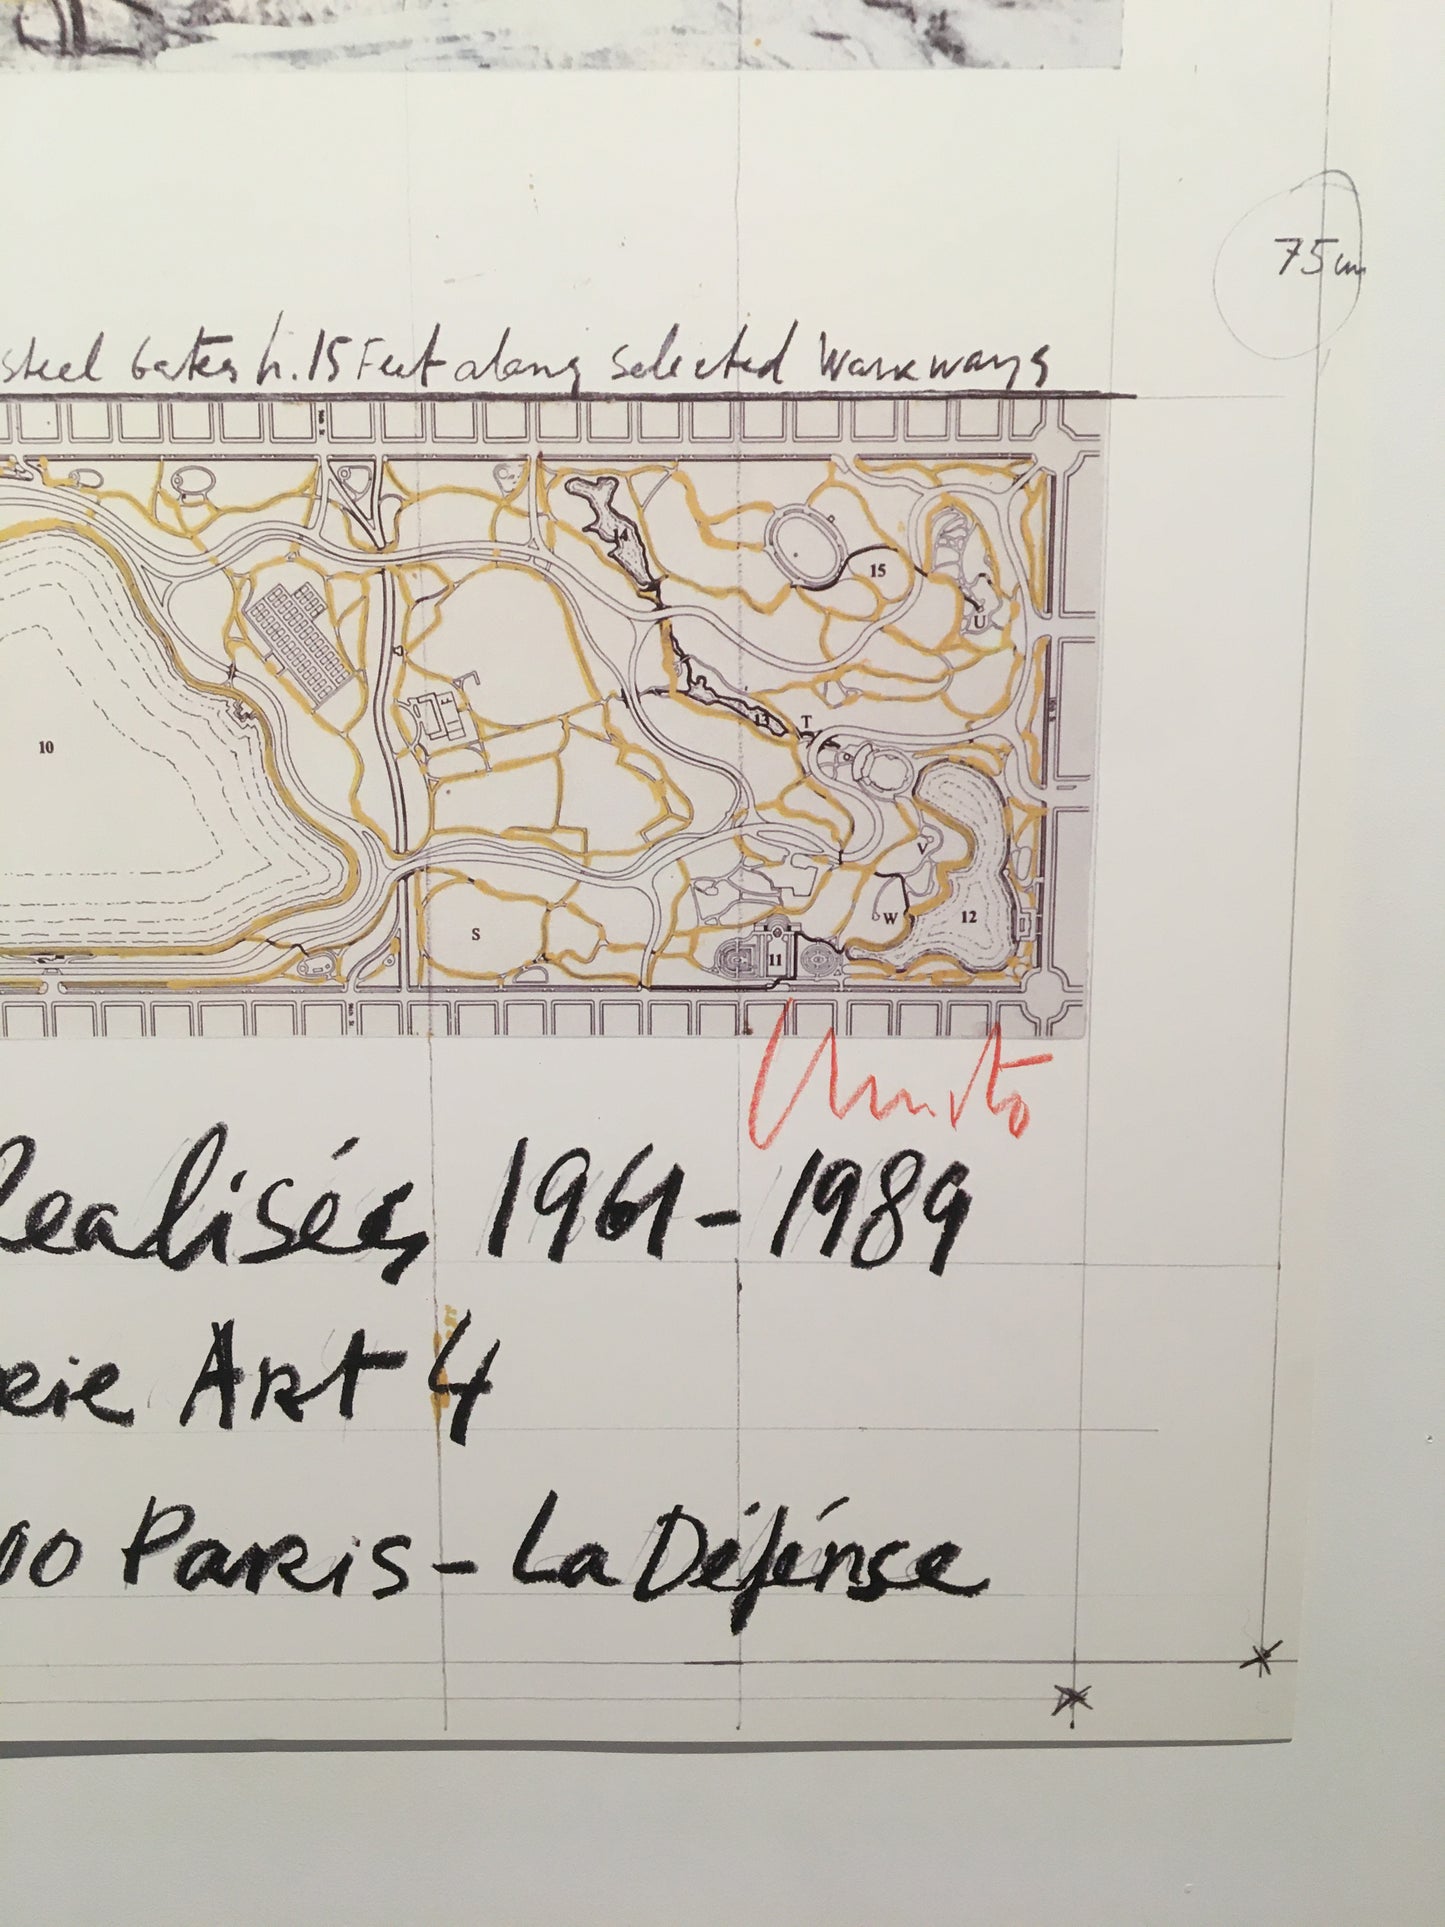 75cm
steel Gates h. 15 Feet along selected Walkways
14
15
U
10
13
T
V
W
12
S
11
Christo
Realisés 1961-1989
erie Art 4
00 Paris - La Défénse